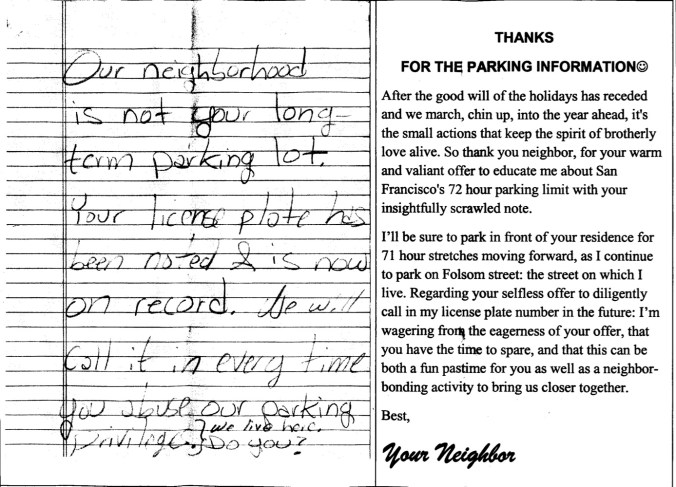 Our neighborhood
is not your long-
term parking lot.
Your license plate has
been noted & is now
on record. We will
Call it in every time
you abuse our parking
privilege. We live here.
Do you?
THANKS
FOR THE PARKING INFORMATION☺
After the good will of the holidays has receded
and we march, chin up, into the year ahead, it's
the small actions that keep the spirit of brotherly
love alive. So thank you neighbor, for your warm
and valiant offer to educate me about San
Francisco's 72 hour parking limit with your
insightfully scrawled note.
I'll be sure to park in front of your residence for
71 hour stretches moving forward, as I continue
to park on Folsom street: the street on which I
live. Regarding your selfless offer to diligently
call in my license plate number in the future: I'm
wagering from the eagerness of your offer, that
you have the time to spare, and that this can be
both a fun pastime for you as well as a neighbor-
bonding activity to bring us closer together.
Best,
Your Neighbor